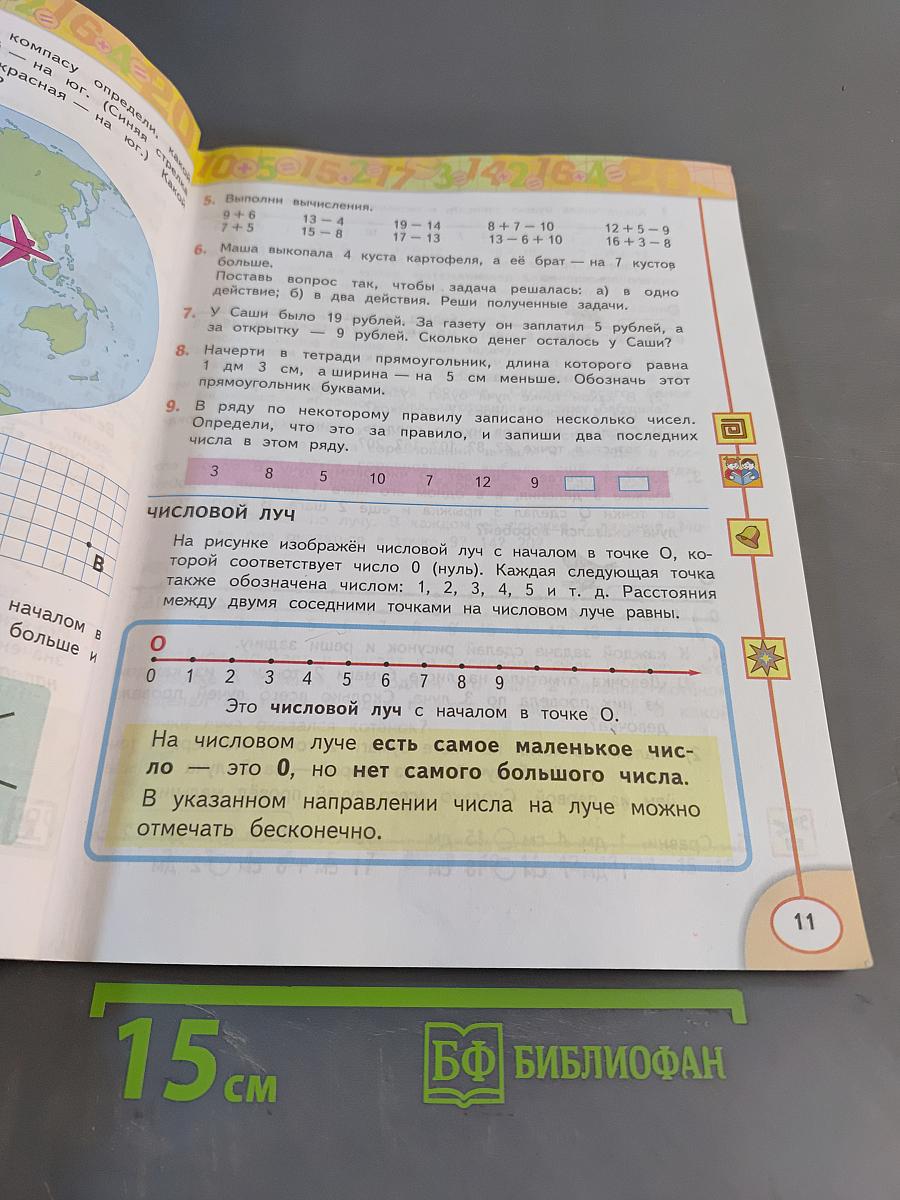 компасу определи, какой
— на юг. (Синяя стрелка
красная — на юг.) Какой
B
началом в
больше и
10+5=15+2=17-3=14+2=16+4=20
5. Выполни вычисления.
9 + 6 13 − 4 19 − 14 8 + 7 − 10 12 + 5 − 9
7 + 5 15 − 8 17 − 13 13 − 6 + 10 16 + 3 − 8
6. Маша выкопала 4 куста картофеля, а её брат — на 7 кустов
больше.
Поставь вопрос так, чтобы задача решалась: а) в одно
действие; б) в два действия. Реши полученные задачи.
7. У Саши было 19 рублей. За газету он заплатил 5 рублей, а
за открытку — 9 рублей. Сколько денег осталось у Саши?
8. Начерти в тетради прямоугольник, длина которого равна
1 дм 3 см, а ширина — на 5 см меньше. Обозначь этот
прямоугольник буквами.
9. В ряду по некоторому правилу записано несколько чисел.
Определи, что это за правило, и запиши два последних
числа в этом ряду.
3 8 5 10 7 12 9
ЧИСЛОВОЙ ЛУЧ
На рисунке изображён числовой луч с началом в точке О, ко-
торой соответствует число 0 (нуль). Каждая следующая точка
также обозначена числом: 1, 2, 3, 4, 5 и т. д. Расстояния
между двумя соседними точками на числовом луче равны.
О
0 1 2 3 4 5 6 7 8 9
Это числовой луч с началом в точке О.
На числовом луче есть самое маленькое чис-
ло — это 0, но нет самого большого числа.
В указанном направлении числа на луче можно
отмечать бесконечно.
11
15 см
БФ БИБЛИОФАН